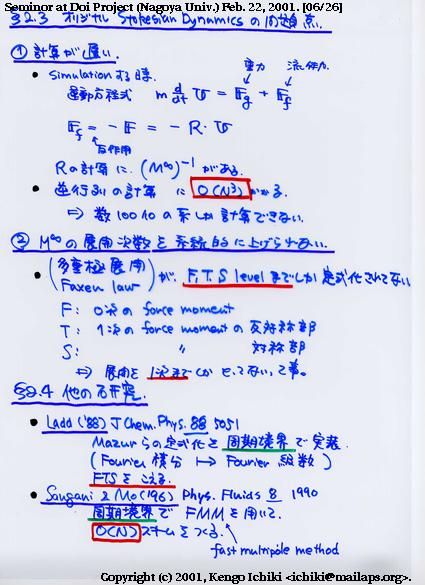 Seminar at Doi Project (Nagoya Univ.) Feb. 22, 2001. [06/26]
§2.3 オリジナル Stokesian Dynamics の問題点.
① 計算が遅い.
• Simulation する時.
重力 流体力.
運動方程式 m d/dt v = F_g + F_f
F_f = - F = - R · v
反作用
R の計算に (M^∞)^{-1} がある.
• 逆行列の計算 に O(N³) かかる.
⇒ 数100コの系しか計算できない.
② M^∞ の展開次数を系統的に上げられない.
• (多重極展開 Faxen law) が, F,T,S level までしか定式化されてない
F: 0次の force moment
T: 1次の force moment の反対称部
S: 〃 対称部
⇒ 展開を 1次まで しかとってない, って事.
§2.4 他の研究.
• Ladd ('88) J Chem. Phys. 88 5051
Mazur らの定式化を 周期境界 で実装.
(Fourier 積分 ↦ Fourier 級数)
FTS をこえる.
• Sangani & Mo (196) Phys. Fluids 8 1990
周期境界で FMM を用いて.
O(N) スキームをつくる.
fast multipole method
Copyright (c) 2001, Kengo Ichiki <ichiki@mailaps.org>.